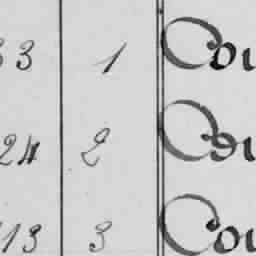 33 1 Cou
24 2 Cou
113 3 Cou